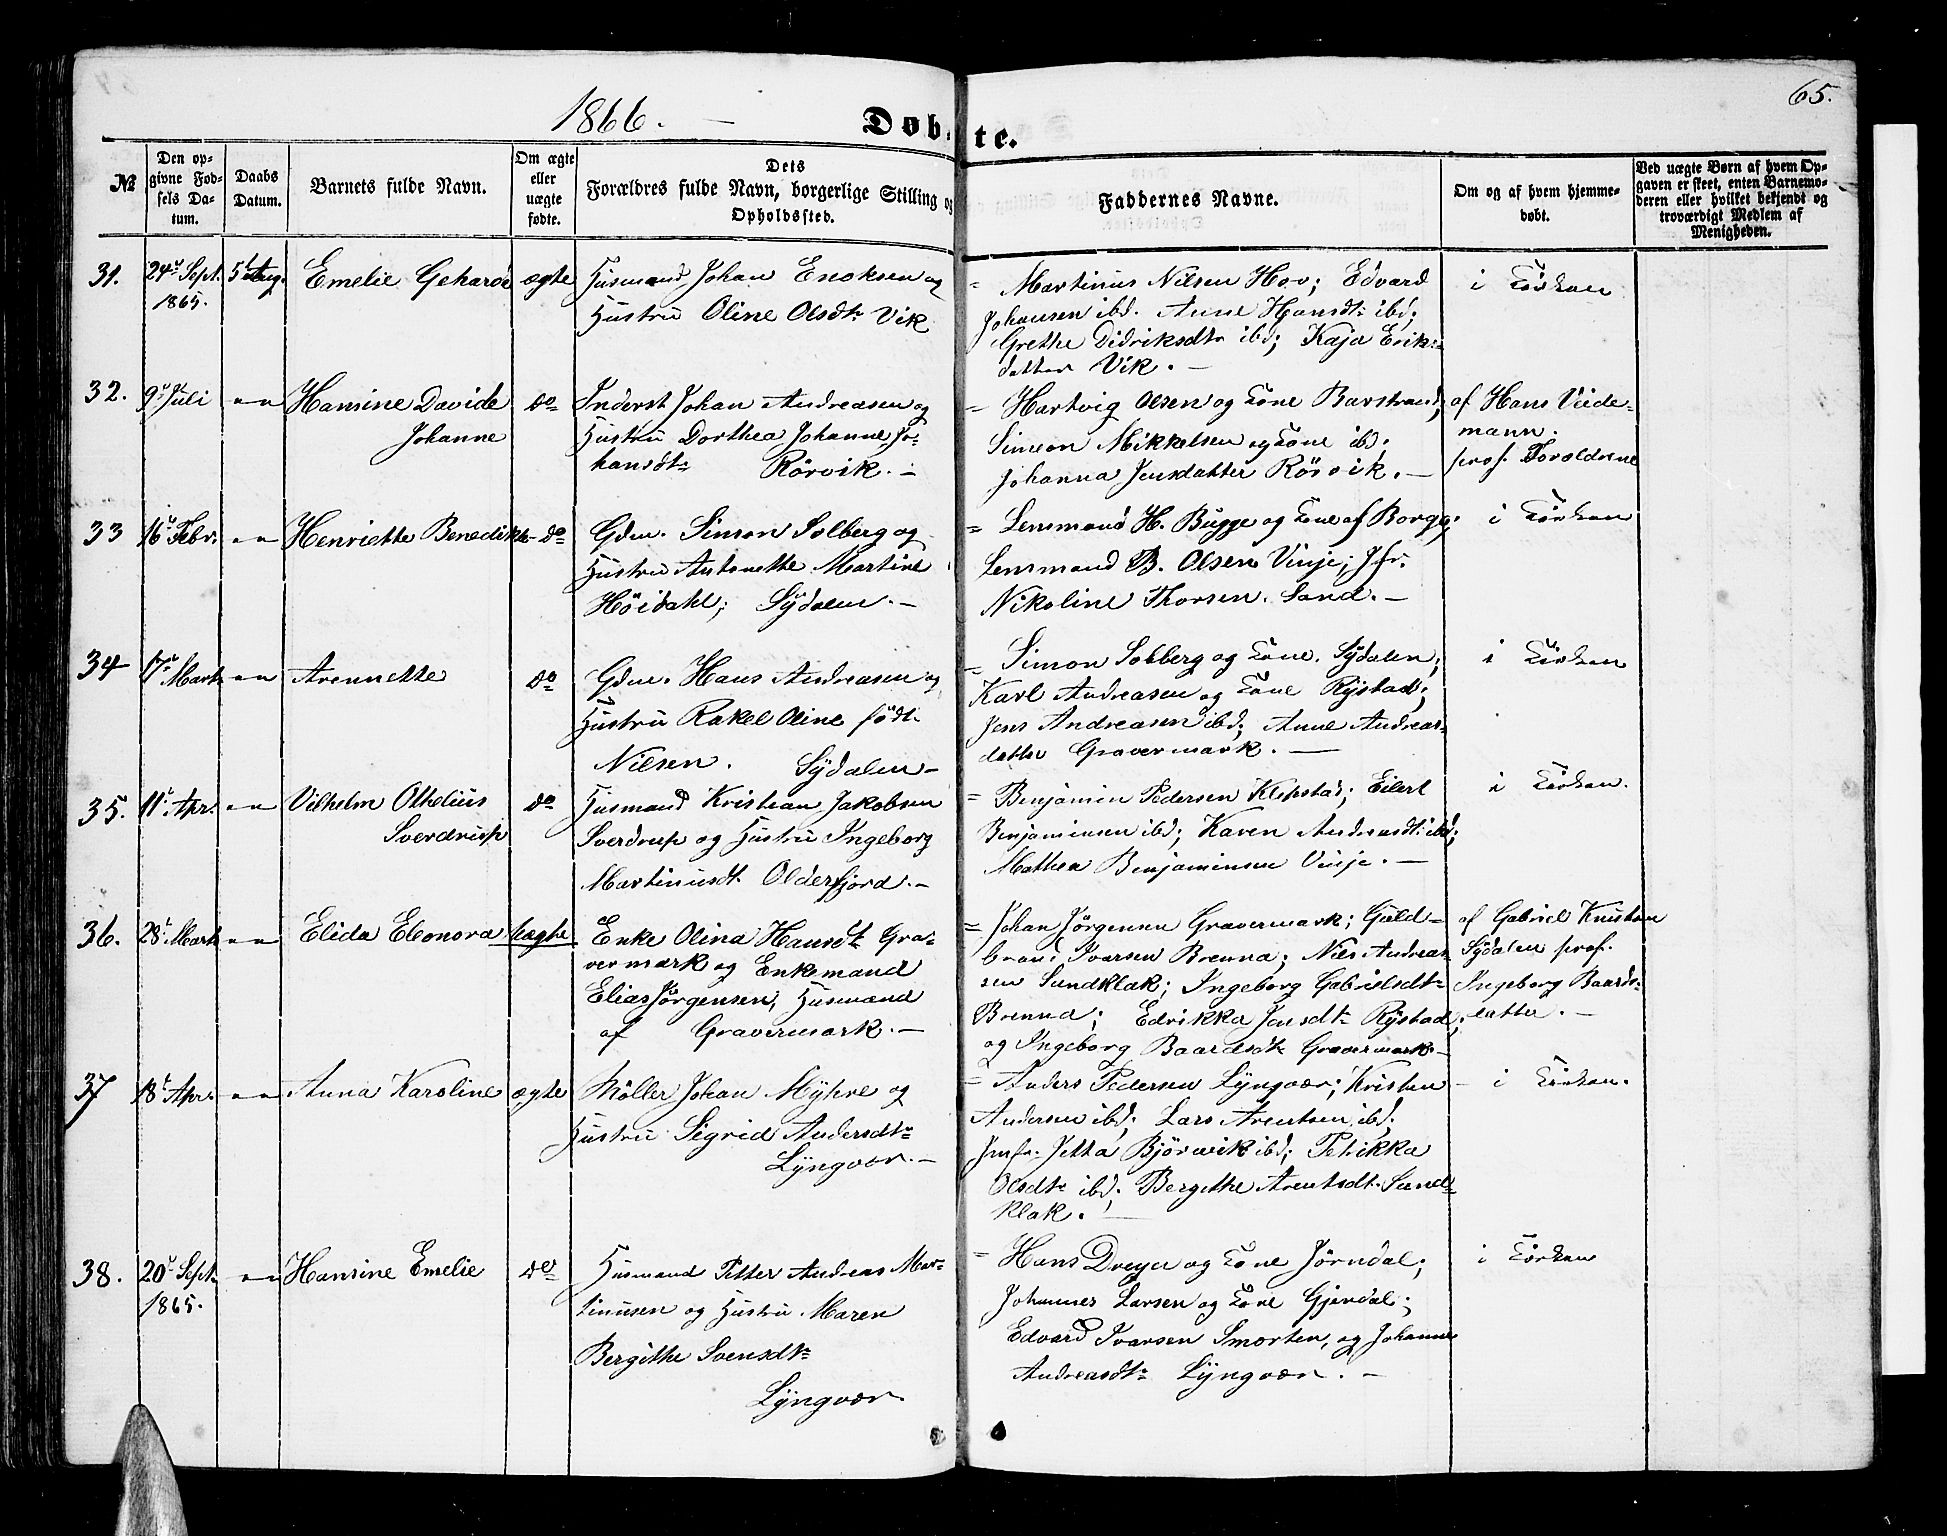 65.
1866. — Døbte.
№
Den opgivne Fødsels Datum.
Daabs Datum.
Barnets fulde Navn.
Om ægte eller uægte fødte.
Dets Forældres fulde Navn, borgerlige Stilling og Opholdssted.
Faddernes Navne.
Om og af hvem hjemmedøbt.
Ved uægte Børn af hvem Opgaven er skeet, enten Barnemoderen eller hvilket bekjendt og troværdigt Medlem af Menigheden.
31. 24de Sept. 5te Aug. Emelie Geharde ægte Husmand Johan Enoksen og
1865. Hustru Oline Olsdtr Vik
= Martinus Nilsen Hov; Edvard i Kirken
Johansen ibd. Anne Hansdtr ibd;
Grethe Didriksdtr ibd; Kaja Eriks-
datter Vik. —
32. 9de Juli — " — Hansine Davide do Inderst Johan Andreasen og
Johanne Hustru Dorthea Johanne Jo-
hansdtr Rörvik. —
= Hartvig Olsen og Kone Barstrand; af Hans Viide-
Simeon Mikkelsen og Kone ibd; mann.
Johanna Jensdatter Rörvik. — prof. Foroldrene
33 16de Febr. — " — Henriette Benedikte do Gdm. Simon Solberg og
Hustru Antonette Martine
Höidahl; Sÿdalen. —
= Lensmand H. Bugge og Kone af Borge; i Kirken
Lensmand B. Olsen Vinje; Jfr.
Nikoline Thorsen. Sand. —
34 17de Marts — " — Arennette do Gdm. Hans Andreasen og
Hustru Rakel Oline född
Nilsen. Sÿdalen —
= Simon Solberg og Kone. Sÿdalen; i Kirken
Karl Andreasen og Kone Rÿstad;
Jens Andreasen ibd; Anne Andreas-
datter Gravermark. —
35. 11te Apr. — " — Vilhelm Othelius do Husmand Kristian Jakobsen
Sverdrup Sverdrup og Hustru Ingeborg
Martinusdt. Olderfjord. —
= Benjamin Pedersen Klepstad; Eilert i Kirken.
Benjaminsen ibd; Karen Andreasdt: ibd;
Mathea Benjaminsen Vinje. —
36. 28de Marts — " — Elida Eleonora uægte Enke Olina Hansdtr Gra-
vermark og Enkemand
Elias Jörgensen, Husmand
af Gravermark. —
= Johan Jörgensen Gravermark; Guld- af Gabriel Kristian
brand Ivarsen Brenna; Nils Andreas- Sÿdalen prof.
sen Sundklak; Ingeborg Gabrielsdtr Ingeborg Baards-
Brenna; Edrikka Jensdtr Rÿstad; datter. —
og Ingeborg Baardsdtr Gravermark. —
37 18de Apr. — " — Anna Karoline ægte Möller Johan Mÿhre og
Hustru Sigrid Andersdtr
Lÿngvær. —
= Anders Pedersen Lÿngvær; Kristen — i Kirken.
Andersen ibd; Lars Arentsen ibd;
Jmfr. Jetta Björnvik ibd; Petrikka
Olsdtr ibd; Bergithe Arentsdt. Sund-
klak. —
38. 20de Sept. — " — Hansine Emelie do Husmand Petter Andreas Mar-
1865. tinusen og Hustru Maren
Bergithe Svensdtr
Lÿngvær.
= Hans Dreyer og Kone Jörndal; i Kirken
Johannes Larsen og Kone Gjerdal;
Edvard Ivarsen Smorten, og Johanne
Andreasdtr Lÿngvær. —